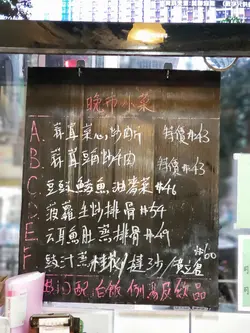 晚市小菜
A. 蒜茸菜心炒肉片 特價 $43
B. 蒜茸豆角炒牛肉 特價 $43
C. 豆豉鯪魚油麥菜 $46
D. 菠蘿生炒排骨 $54
E. 魚肚蒸排骨 $49
F. 豉汁蒸 $60
配白飯 例湯及飲品